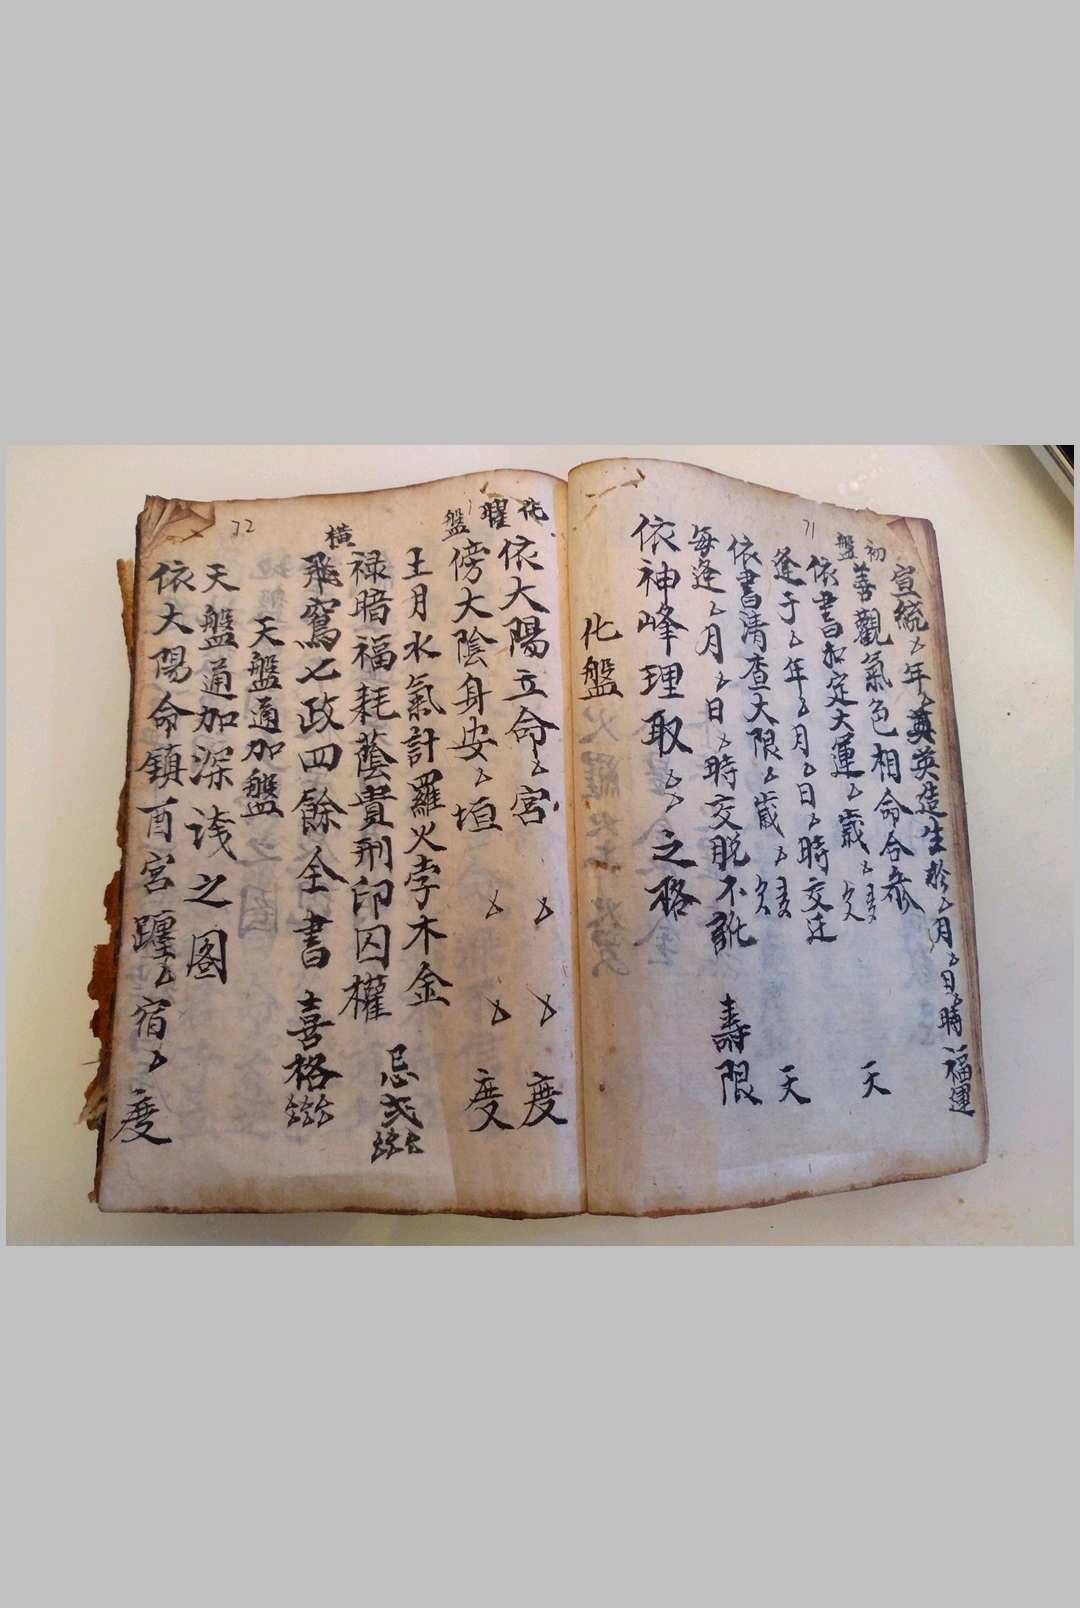 71
初盤
宣統〻年英英造生於〻月〻日〻時 福運
善觀氣色相命合參 天
依書扣定大運〻歲
逢于〻年〻月〻日〻時交迁 天
依書清查大限〻歲〻
每逢〻月〻日〻時交脱不訛 壽限
依神峰理取〻〻之格
化盤
72
化曜盤
依大陽立命〻宮〻〻度
傍大陰身安〻垣〻〻度
王月水氣計羅火孛木金 忌
禄暗福耗蔭貴刑印囚權
橫
飛寫七政四餘全書 喜格
天盤通加盤
天盤通加深浅之图
依大陽命鎮酉宮躔〻宿〻度